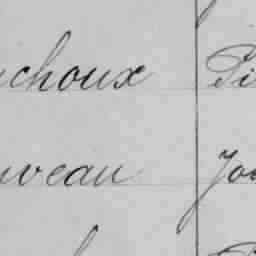 uchoux Pi
uveau Jos